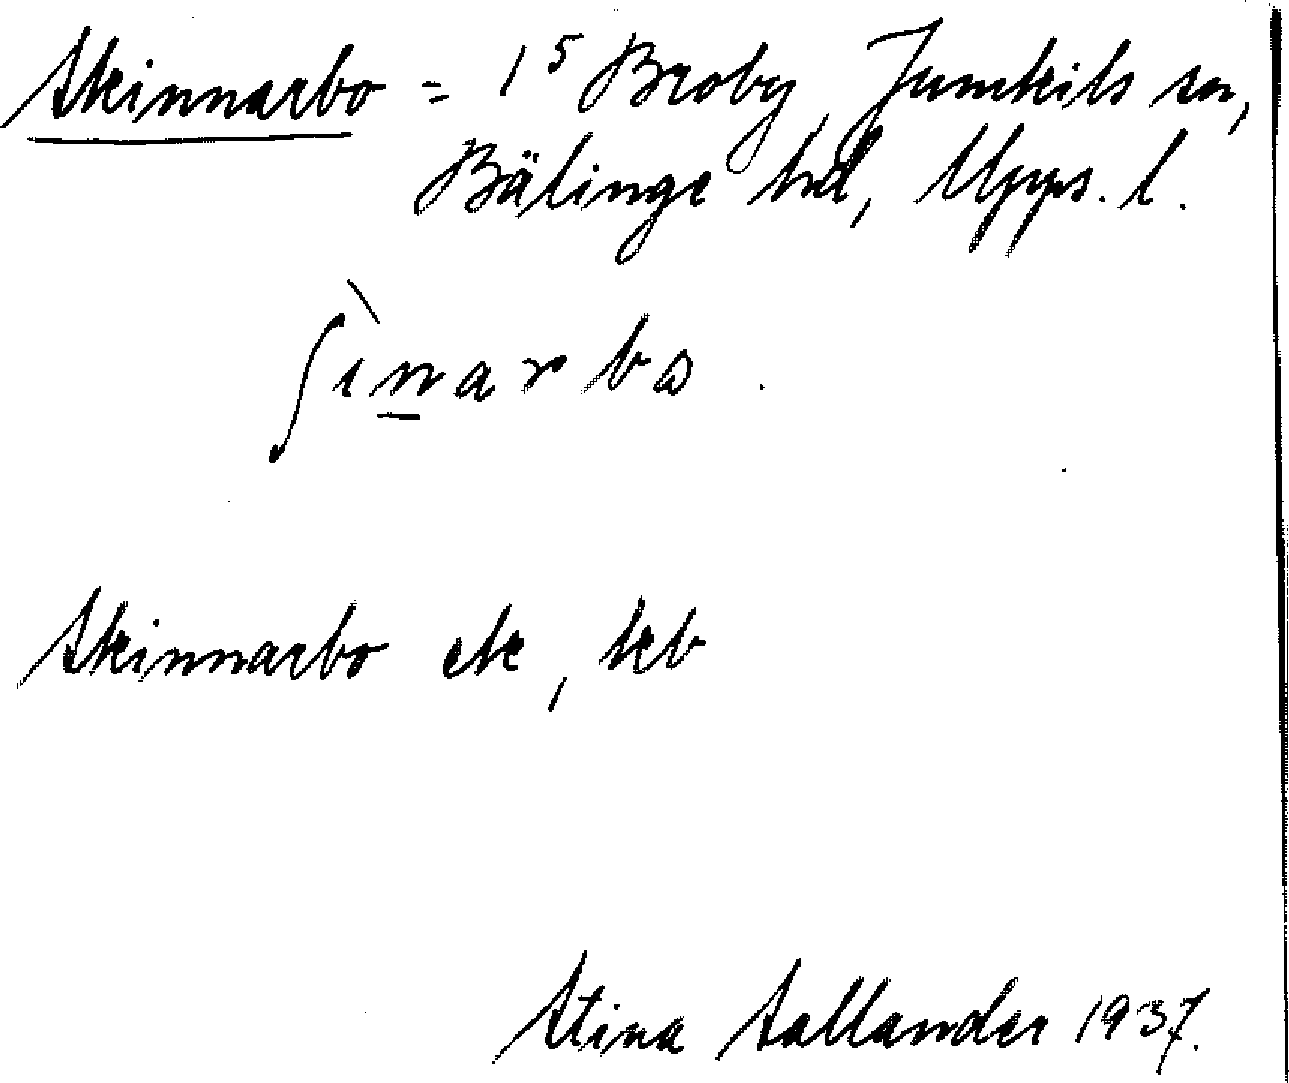 Skinnarbo = 1⁵ Broby, Jumkils sn,
Bälinge hd, Upps. l.
ʃìn̲arbo.
Skinnarbo ek, kb
Stina Sallander 1937.